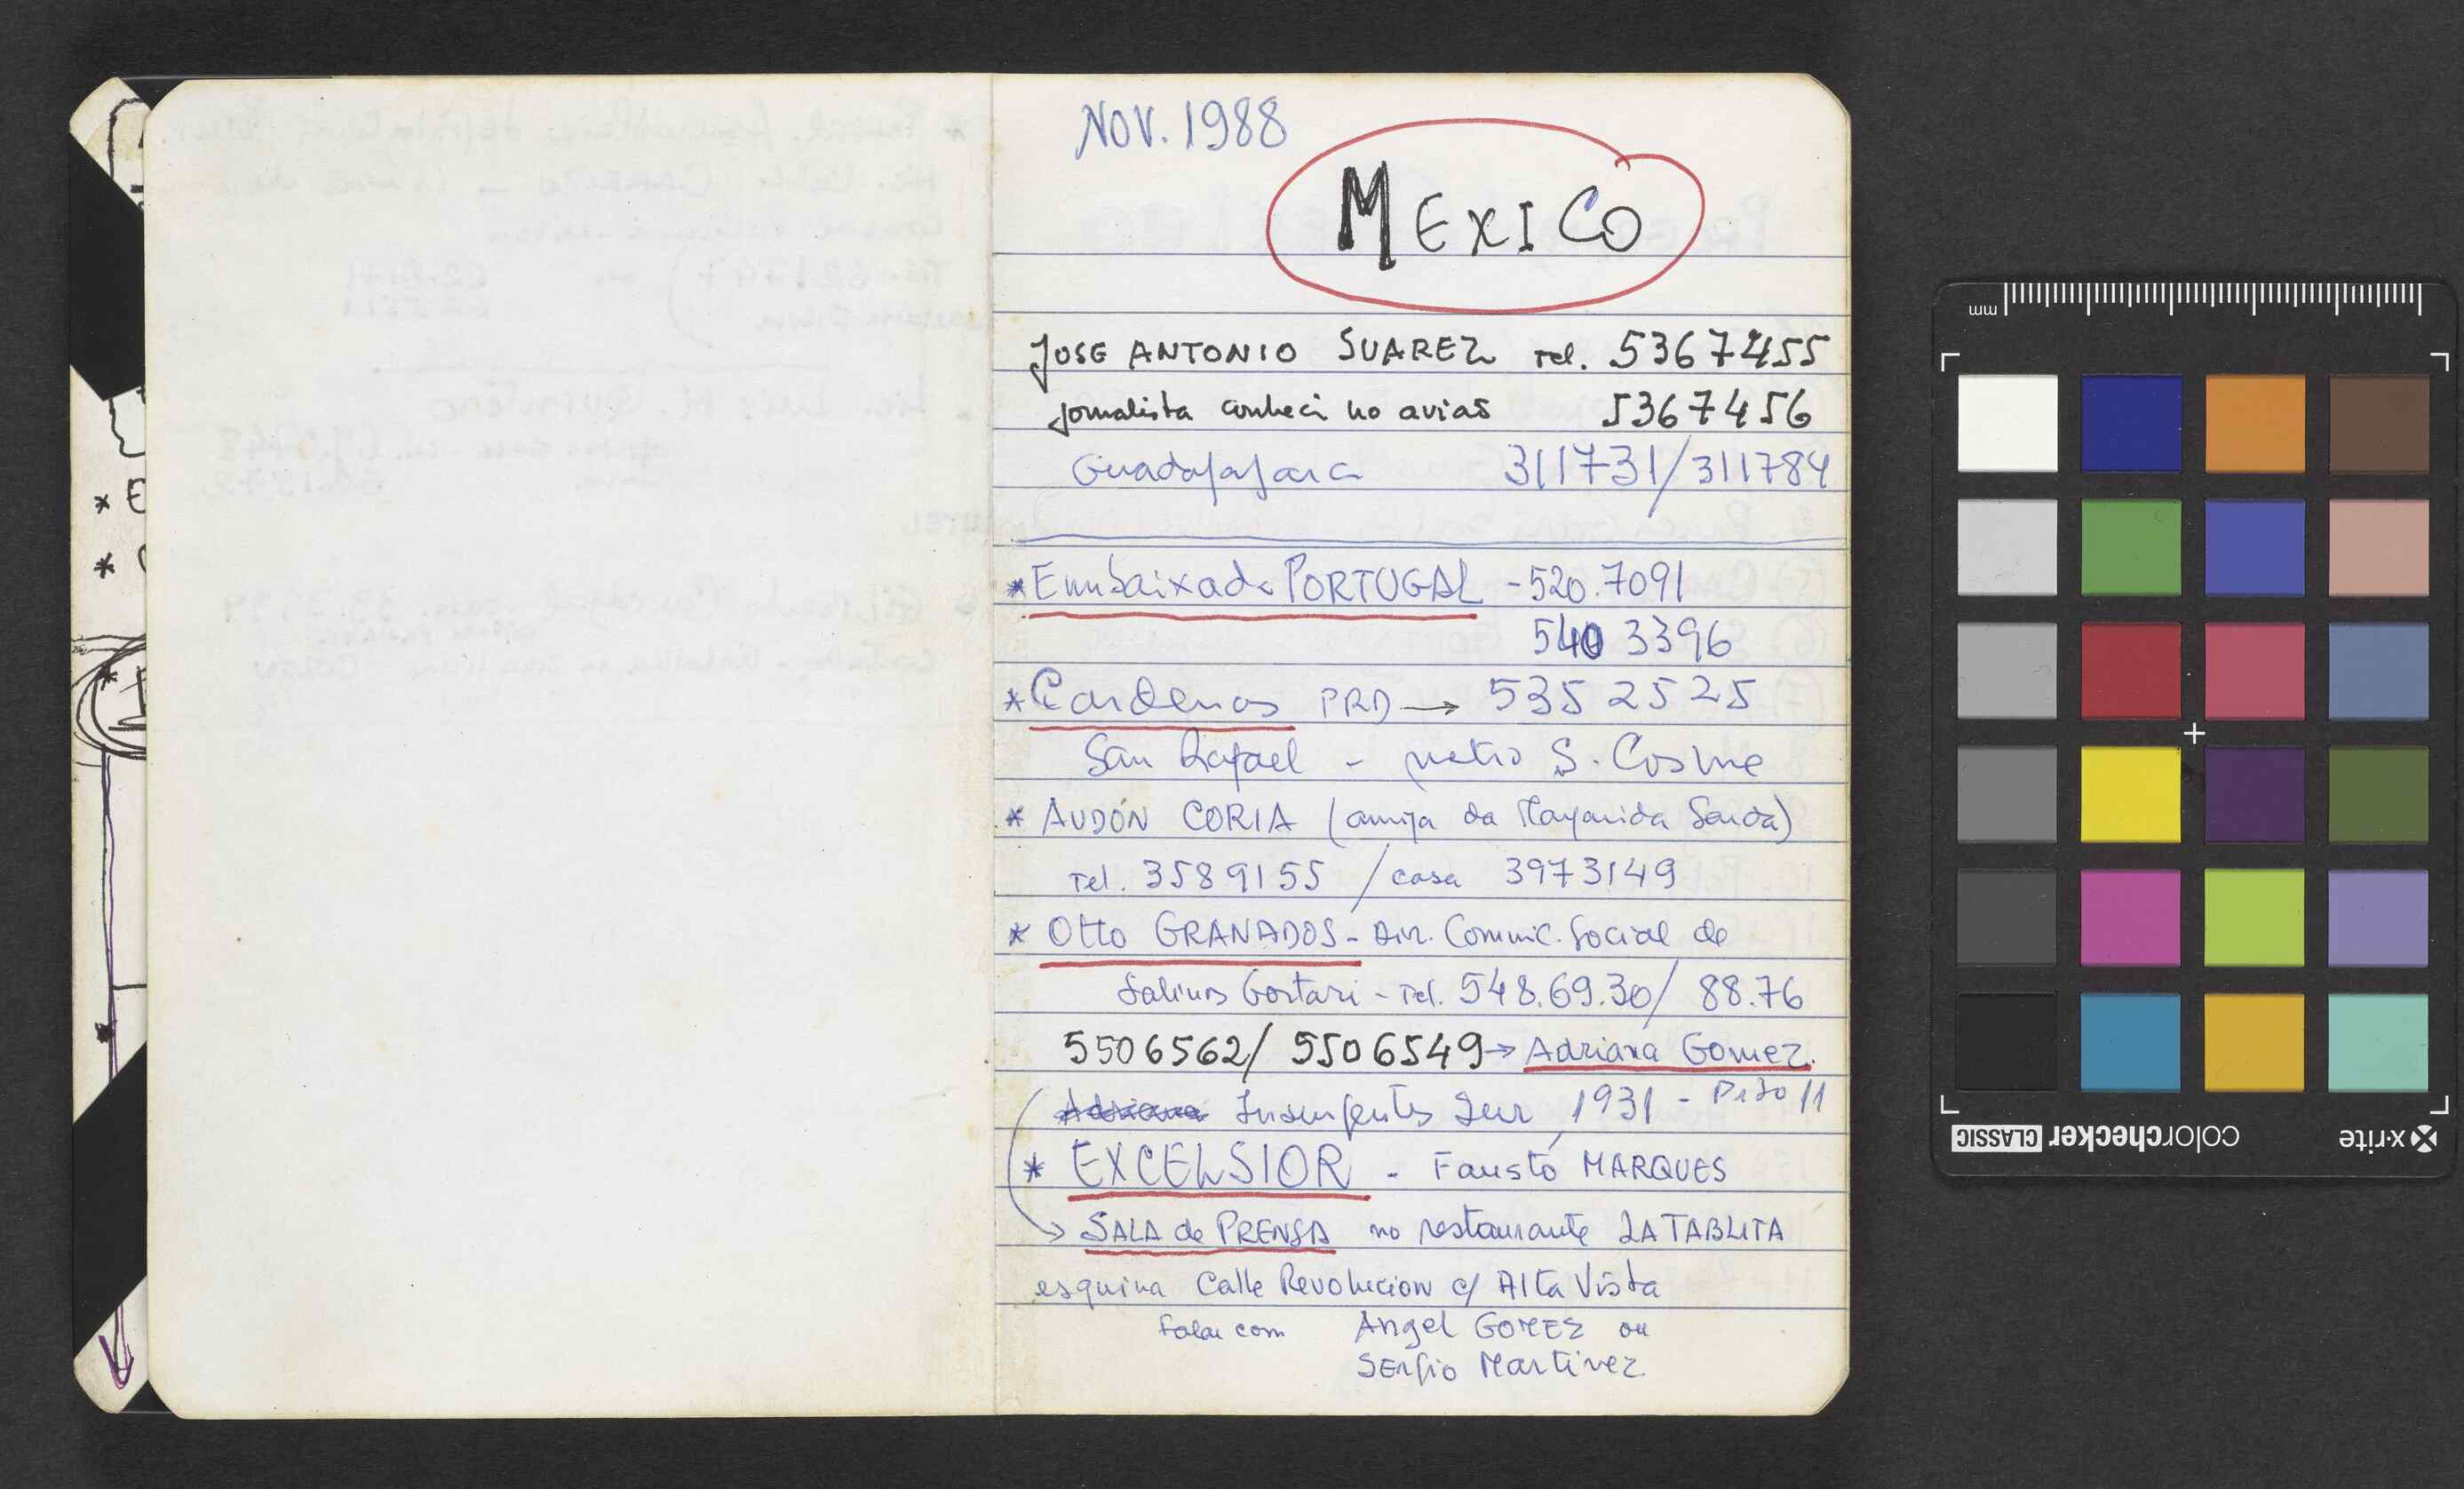 NOV. 1988
MEXICO
JOSE ANTONIO SUAREZ Tel. 5367455
jornalista conheci no avião 5367456
Guadalajara 311731/311784
* Embaixada PORTUGAL - 520.7091
540 3396
* Cardenas PRD → 535 25 25
San Rafael - metro S. Cosme
* AUDÓN CORIA (amiga da Margarida
Tel. 3589155 / casa 3973149
* Otto GRANADOS - Dir. Comunic. Social de
Salinas Gortari - Tel. 548.69.30/ 88.76
5506562/ 5506549 → Adriana Gomez.
Adriana Insurgentes Sur 1931 - Piso 11
* EXCELSIOR - Fausto MARQUES
→ SALA de PRENSA no restaurante LA TABLITA
esquina Calle Revolucion c/ Alta Vista
falar com Angel GOMEZ ou
SErgio Martinez
* E
*
mm
x-rite
colorchecker CLASSIC